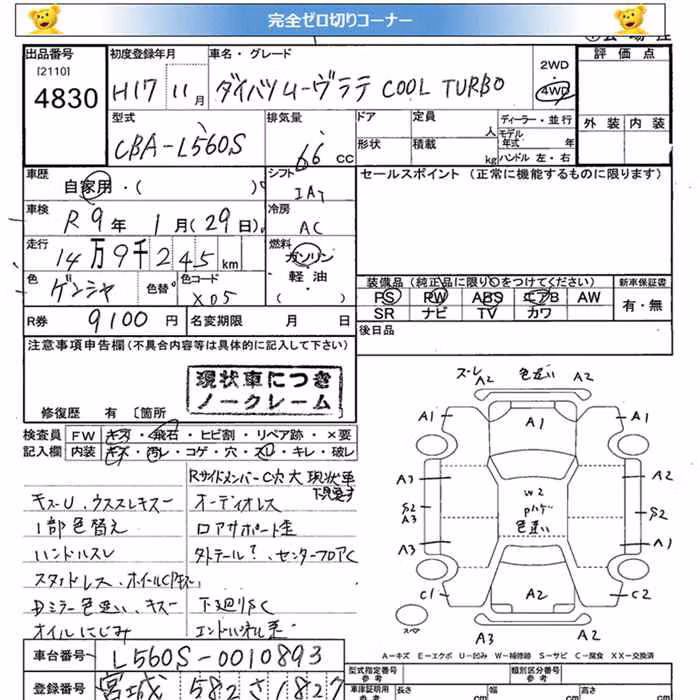 完全ゼロ切りコーナー
出品番号
[2110]
4830
初度登録年月
H17 11月
車名・グレード
ダイハツ ムーヴラテ COOL TURBO
2WD
4WD
評価点
外装 内装
型式
CBA-L560S
排気量
66 cc
ドア
形状
定員
人
積載
kg
ディーラー・並行
モデル
年式 年
ハンドル 左・右
車歴
自家用・( )
シフト
IAT
セールスポイント (正常に機能するものに限ります)
車検
R9年 1月(29日)
冷房
AC
走行
14万9千245km
燃料
ガソリン
軽・油
( )
色
ゲンシャ
色替
色コード
X05
装備品 (純正品に限り○をつけてください)
新車保証書
PS PW ABS エアB AW
SR ナビ TV カワ
有・無
R券 9100円
名変期限 月 日
後日品
注意事項申告欄(不具合内容等は具体的に記入して下さい)
現状車につき
ノークレーム
修復歴 有 〔箇所
検査員
記入欄
FW キズ・飛石・ヒビ割・リペア跡・×要
内装 キズ・汚レ・コゲ・穴・スレ・キレ・破レ
Rサイドメンバー C穴大 現状車
キズU、ウススレキズ
オーディオレス
1部色替え
ロアサポート歪
ハンドルスレ
タトテール?、センターフロアC
スタッドレス、ホイールC
Dミラー色違い、キズ
下廻りSC
オイルにじみ
車台番号 L560S-0010893
登録番号 宮城 582 さ 1827
ズレ A2 色違い A2
A1 A1 A1
A3 A2
S2 A3
W2
Pハゲ
色違い
S2
A3 A1
C1 A2 C2
スペア
A3 A2
A=キズ E=エクボ U=凹み W=補修跡 S=サビ C=腐食 XX=交換済
型式指定番号
参考
類別区分番号
参考
車庫証明用
参考
長さ cm 幅 cm 高さ cm